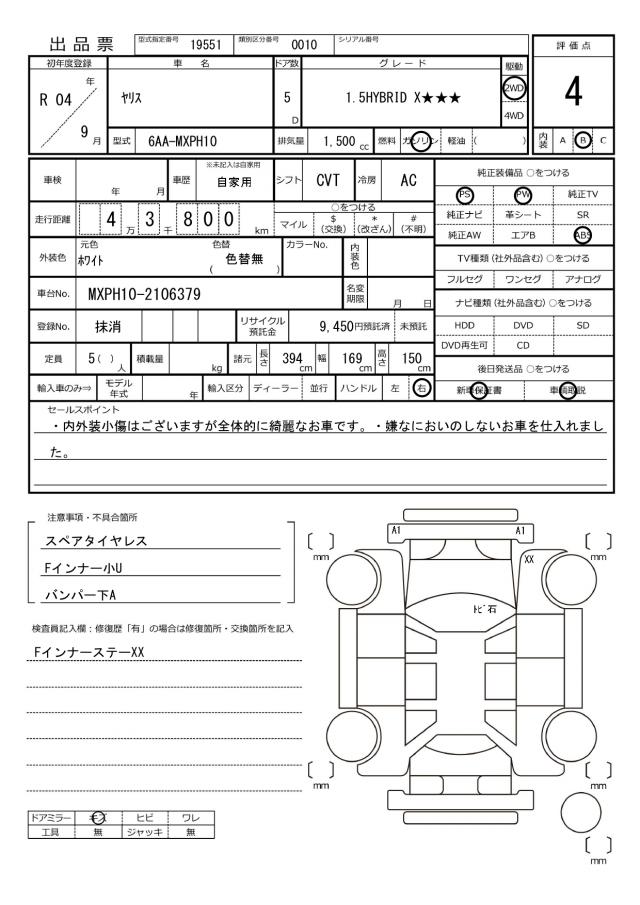 出品票 型式指定番号 19551 類別区分番号 0010 シリアル番号
評価点
4
初年度登録 車名 ドア数 グレード 駆動
R 04 年 9 月 ﾔﾘｽ 5 D 1.5HYBRID X★★★ 2WD 4WD
型式 6AA-MXPH10 排気量 1,500 cc 燃料 ガソリン 軽油 ( )
内装 A B C
車検 年 月 車歴 ※未記入は自家用 自家用 シフト CVT 冷房 AC
走行距離 4 3 8 0 0 万 千 km
○をつける
マイル $ (交換) * (改ざん) # (不明)
外装色 元色 ﾎﾜｲﾄ 色替 ( 色替無 ) カラーNo. 内装色
車台No. MXPH10-2106379 名変期限 月 日
登録No. 抹消 リサイクル預託金 9,450円預託済 未預託
定員 5 ( ) 人 積載量 kg 諸元 長さ 394 cm 幅 169 cm 高さ 150 cm
輸入車のみ⇒ モデル年式 年 輸入区分 ディーラー 並行 ハンドル 左 右
純正装備品 ○をつける
PS PW 純正TV
純正ナビ 革シート SR
純正AW エアB ABS
TV種類 (社外品含む) ○をつける
フルセグ ワンセグ アナログ
ナビ種類 (社外品含む) ○をつける
HDD DVD SD
DVD再生可 CD
後日発送品 ○をつける
新車保証書 車輌取説
セールスポイント
・内外装小傷はございますが全体的に綺麗なお車です。・嫌なにおいのしないお車を仕入れまし
た。
注意事項・不具合箇所
スペアタイヤレス
Fインナー小U
バンパー下A
検査員記入欄：修復歴「有」の場合は修復箇所・交換箇所を記入
FインナーステーXX
ドアミラー キズ ヒビ ワレ
工具 無 ジャッキ 無
A1 A1
XX
ﾄﾋﾞ石
mm mm
mm mm
mm